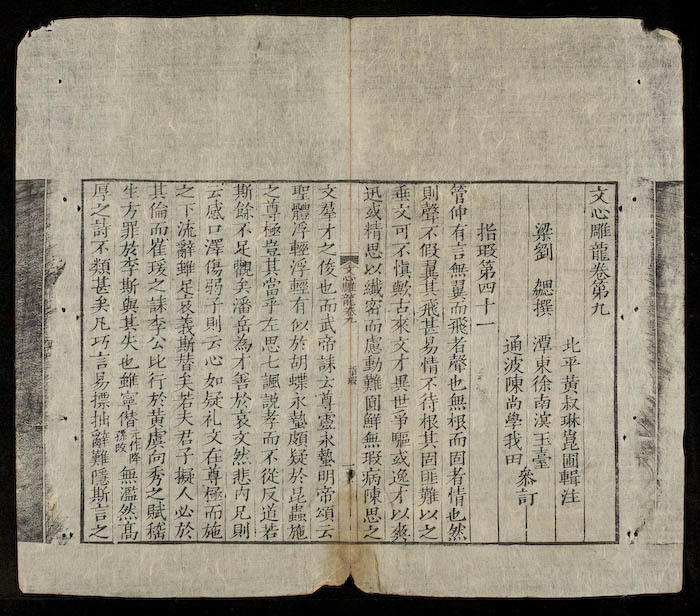 文心雕龍卷第九
梁劉 勰撰
北平黃叔琳崑圃輯注
潭東徐南溟玉臺
通波陳尚學我田
參訂
指瑕第四十一
管仲有言無翼而飛者聲也無根而固者情也然
則聲不假翼其飛甚易情不待根其固匪難以之
垂文可不慎歟古來文才異世爭驅或逸才以爽
迅或精思以纖密而慮動難圓鮮無瑕病陳思之
文心雕龍卷九
指瑕
一
文羣才之俊也而武帝誄云尊靈永蟄明帝頌云
聖體浮輕浮輕有似於胡蝶永蟄頗疑於昆蟲施
之尊極豈其當乎左思七諷說孝而不從反道若
斯餘不足觀矣潘岳為才善於哀文然悲內兄則
云感口澤傷弱子則云心如疑礼文在尊極而施
之下流辭雖足哀義斯替矣若夫君子擬人必於
其倫而崔瑗之誄李公比行於黃虞向秀之賦嵇
生方罪於李斯與其失也雖寧僭元作降孫改無濫然高
厚之詩不類甚矣凡巧言易摽拙辭難隱斯言之